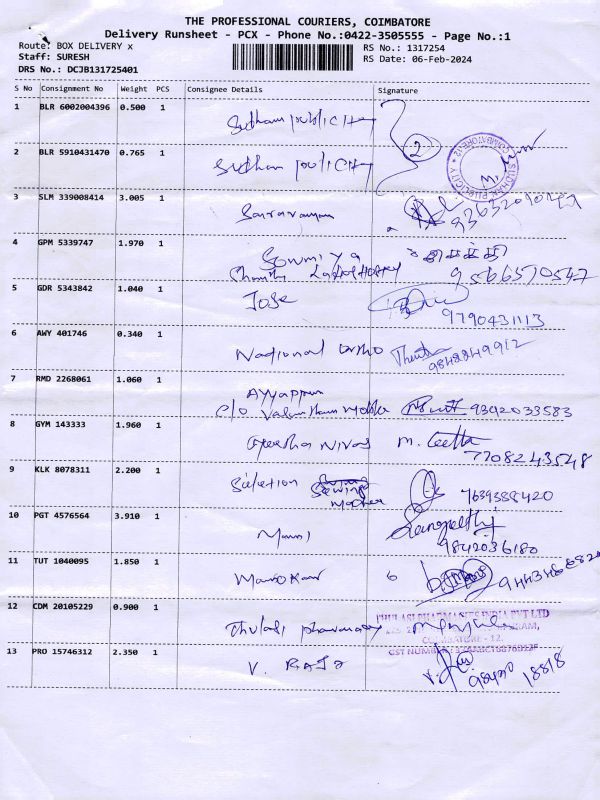 THE PROFESSIONAL COURIERS, COIMBATORE
Delivery Runsheet - PCX - Phone No.:0422-3505555 - Page No.:1
Route: BOX DELIVERY x
RS No.: 1317254
Staff: SURESH
RS Date: 06-Feb-2024
DRS No.: DCJB131725401
S No Consignment No Weight PCS Consignee Details Signature
1 BLR 6002004396 0.500 1
Sudham publicity
2
2 BLR 5910431470 0.765 1
Sudham publicity
3 SLM 339008414 3.005 1
Saravanan
4 GPM 5339747 1.970 1
Sowmiya
9566570547
5 GDR 5343842 1.040 1
Jose
9790431113
6 AWY 401746 0.340 1
National ortho
9848849912
7 RMD 2268061 1.060 1
Ayyappan
c/o
9342033583
8 GYM 143333 1.960 1
Nivas M. Geetha
7708243548
9 KLK 8078311 2.200 1
7639388420
10 PGT 4576564 3.910 1
Mani
9842036180
11 TUT 1040095 1.850 1
Manokar 6
12 CDM 20105229 0.900 1
Thulasi pharmacy
THULASI PHARMACIES INDIA PVT LTD
COIMBATORE - 12.
13 PRO 15746312 2.350 1
V. RAJA
98420 18818